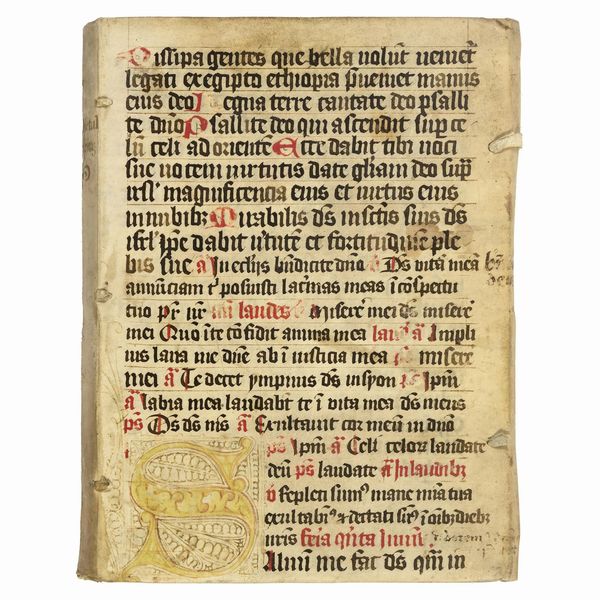 Dissipa gentes que bella volūt veniēt
legati ex egipto ethiopia p̄veniet manus
eius deo Regna terre cantate deo psalli
te dn̄o Psallite deo qui ascendit sup ce
lū celi ad orientē Ecce dabit tibi voci
sue vocem virtutis date gl̄iam deo sup̄
isrl̄ magnificencia eius et virtus eius
in nubibꝫ Mirabilis ds̄ in sctīs suis ds̄
isrl̄ ip̄e dabit v̓tutē et fortitudinē ple
bis sue a̅ In ecl̄ijs bn̄dicite dn̄o v̓ Ds̄ vitā meā
annūciam t̓ posuisti lac̓mas meas ī cōspectu
tuo pr̄ nr̄ in laudes Miserē mei ds̄ miserē
mei Quō ī te cōfidit anima mea laud a̅ Ampli
us lava me dn̄e ab ī iusticia mea ps̄ miserē
mei a̅ Te decet ympnus ds̄ in syon ps̄ Ip̄m
a̅ labia mea laudabūt te ī vita mea ds̄ meus
ps̄ Ds̄ ds̄ ms̄ a̅ Exultavit cor meū in dn̄o
ps̄ Ip̄m a̅ Celi celoꝝ laudate
deū ps̄ laudate a̅ In laudibꝫ
v̓ Repleti sum̓ mane mīa tua
exultabim̓ ⁊ delectati sum̓ ī oībꝫ diebꝫ
nr̄is feria qͥnta Invit̄
Alvū me fac ds̄ qm̄ in